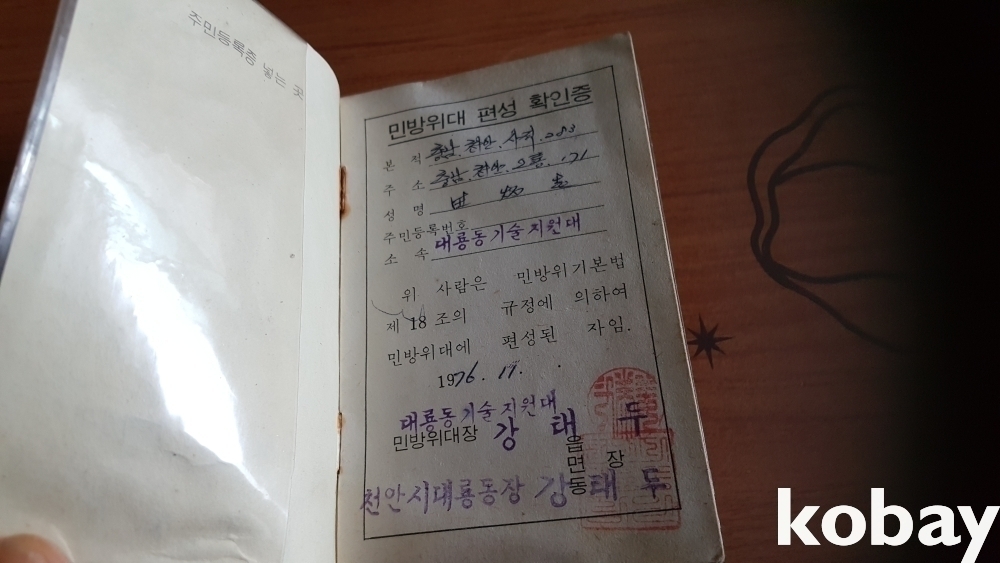 주민등록증 넣는 곳
민방위대 편성 확인증
본 적 충남. 천안. 사직. 283
주 소 충남. 천안. 171
성 명
주민등록번호
소 속 대룡동기술지원대
위 사람은 민방위기본법
제 18 조의 규정에 의하여
민방위대에 편성된 자임.
1976. 11. .
대룡동기술지원대
민방위대장 강 태 두
읍
면 장
동
천안시대룡동장 강 태 두
kobay